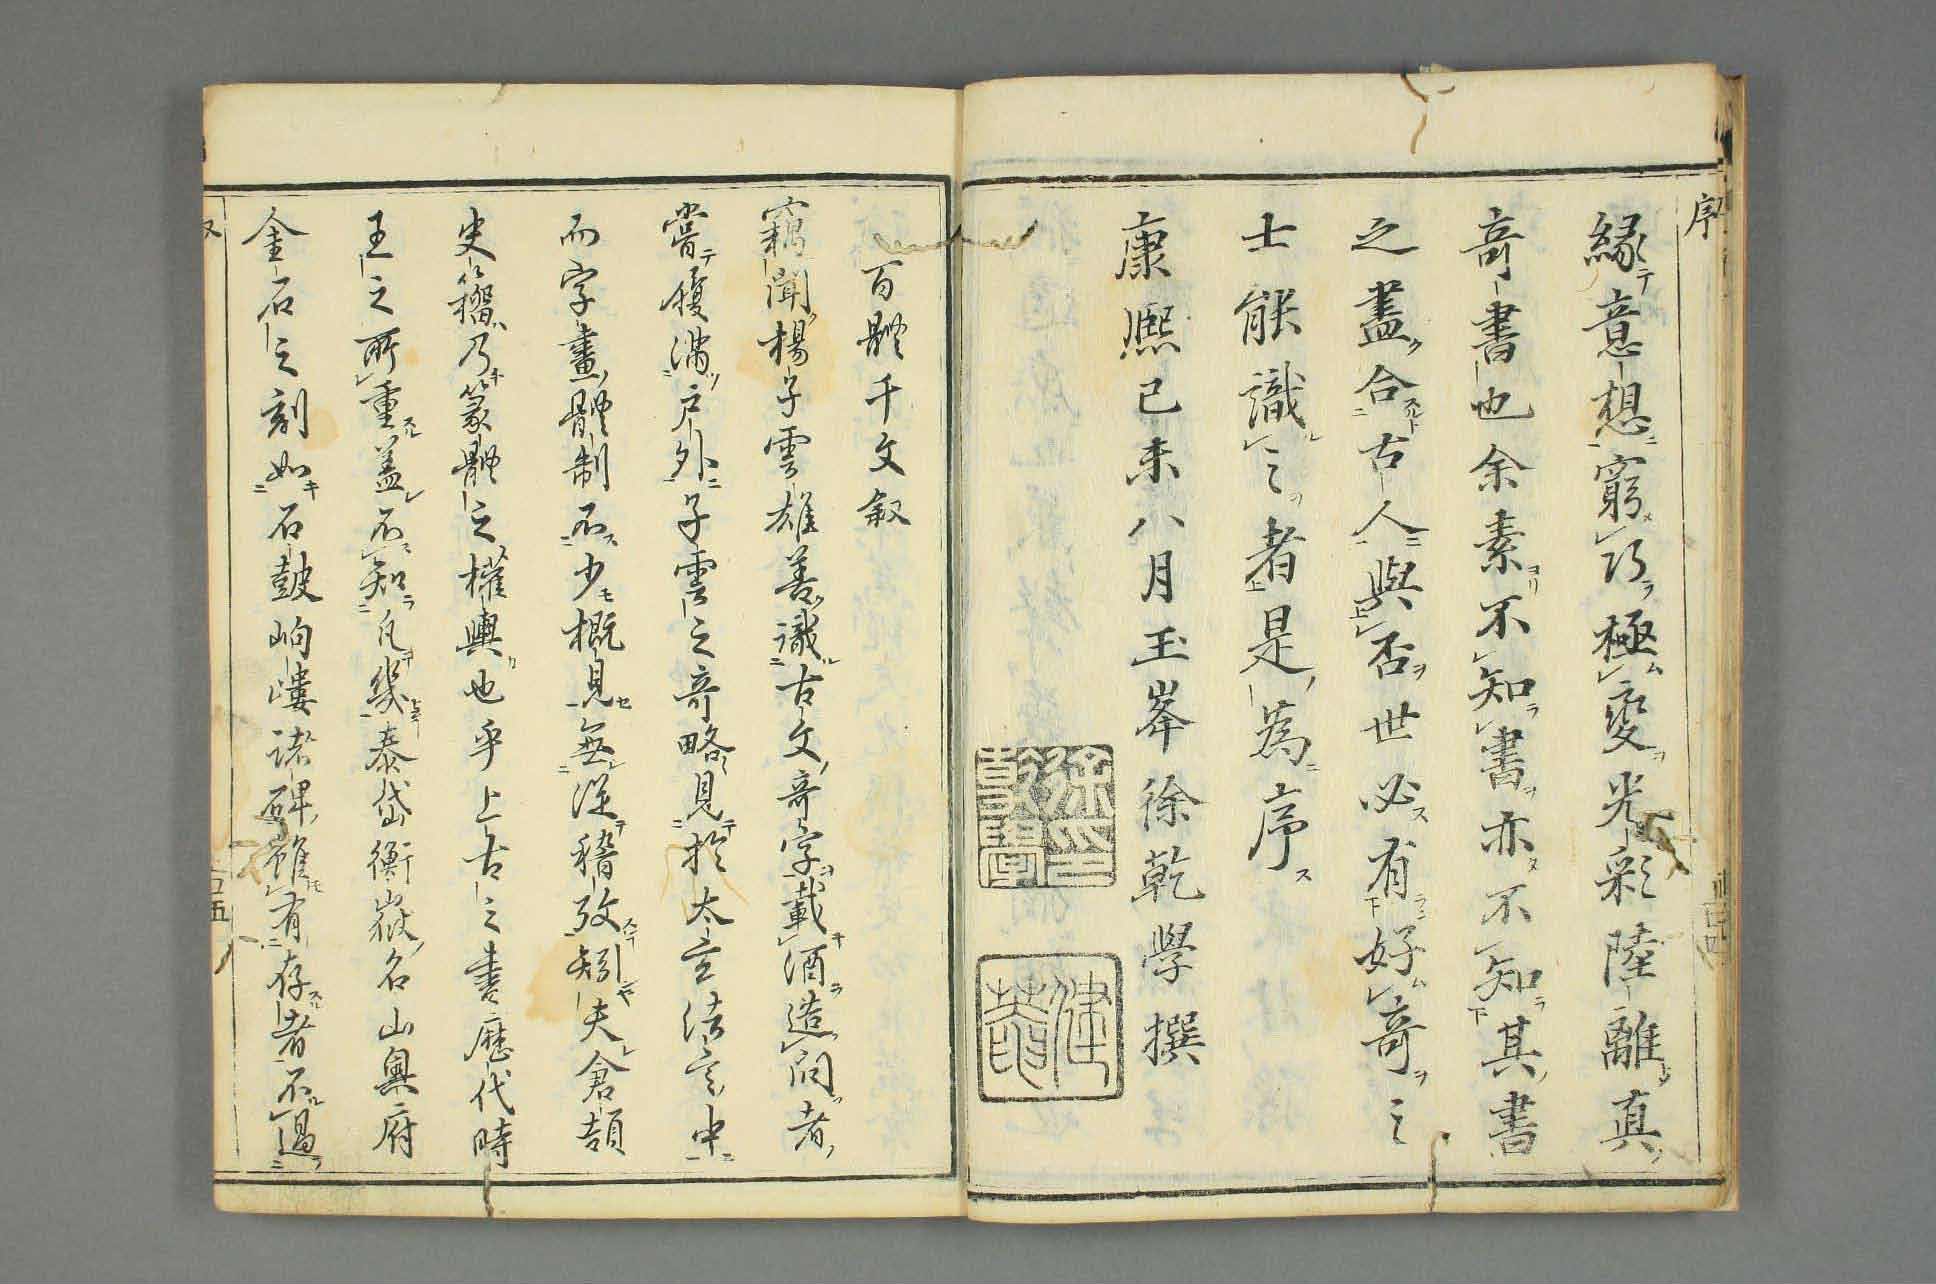 序
緣意想窮巧極變光彩陸離真
奇書也余素不知書亦不知其書
之盡合古人與否世必有好奇之
士能識之者是為序
康熙己未八月玉峯徐乾學撰
徐印乾學
健菴
百體千文敘
竊聞楊子雲雄善識古文奇字載酒造問者
嘗履滿戶外子雲之奇略見於太玄法言中
而字畫體制不少概見無從稽攷矧夫倉頡
史籀乃篆體之權輿也乎上古之書歷代時
王之所重蓋不知凡幾泰岱衡嶽名山奧府
金石之刻如石鼓岣嶁諸碑雖有存者不過